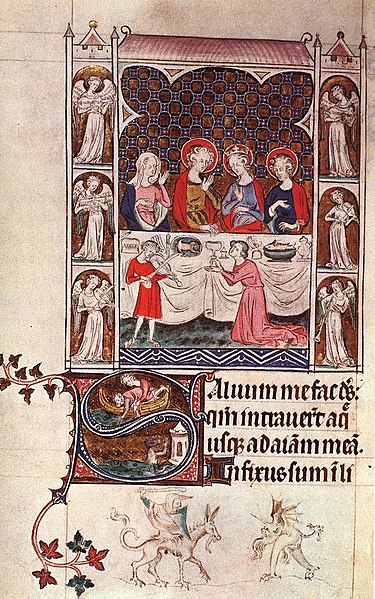 Saluum me fac d̄s:
qm̄ intrauert̄ aq̄
usq; ad aīam meā.
Infixus sum ī li